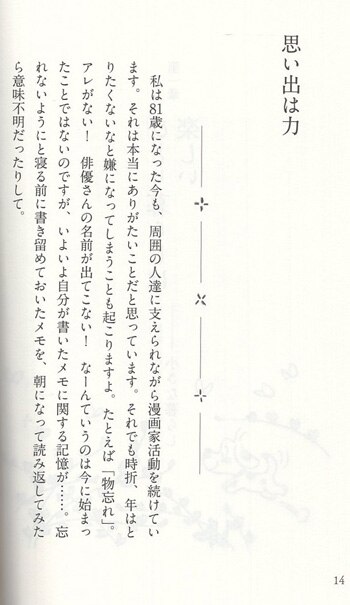 思い出は力
私は81歳になった今も、周囲の人達に支えられながら漫画家活動を続けてい
ます。それは本当にありがたいことだと思っています。それでも時折、年はと
りたくないなと嫌になってしまうことも起こりますよ。たとえば「物忘れ」。
アレがない！　俳優さんの名前が出てこない！　なーんていうのは今に始まっ
たことではないのですが、いよいよ自分が書いたメモに関する記憶が……。忘
れないようにと寝る前に書き留めておいたメモを、朝になって読み返してみた
ら意味不明だったりして。
14